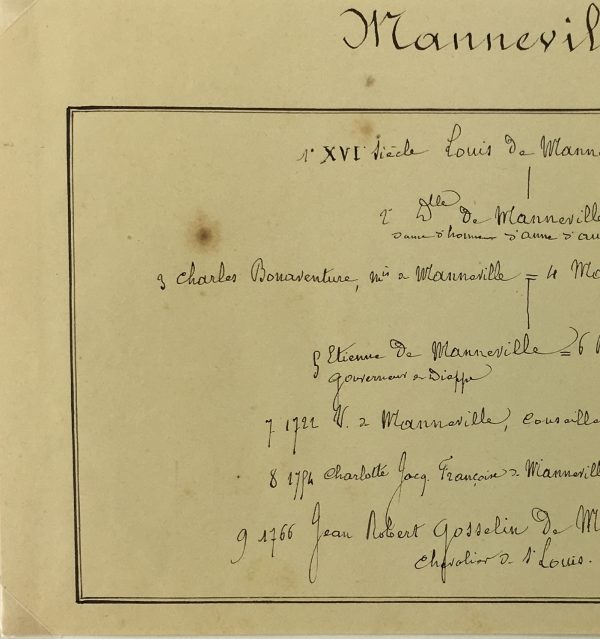 Mannevil
1° XVI Siècle Louis de Mann
2° Dlle de Manneville
dame d'honneur d'anne d'au
3 Charles Bonaventure, mis de Manneville = 4 Ma
5 Etienne de Manneville = 6
gouverneur de Dieppe
7 1722 V. de Manneville, Conseille
8 1754 Charlotte Jacq. Françoise de Mannevill
9 1766 Jean Robert Gosselin de M
Chevalier de St Louis.